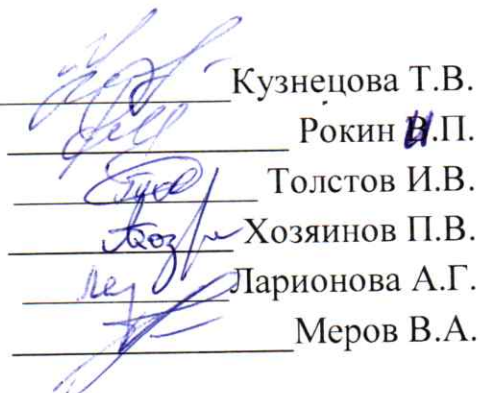 Кузнецова Т.В.
Рокин И.П.
Толстов И.В.
Хозяинов П.В.
Ларионова А.Г.
Меров В.А.